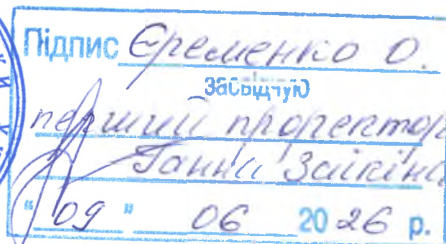 Підпис Єременко О.
засвідчую
перший проректор
Ганна Заікіна
"09" 06 2026 р.